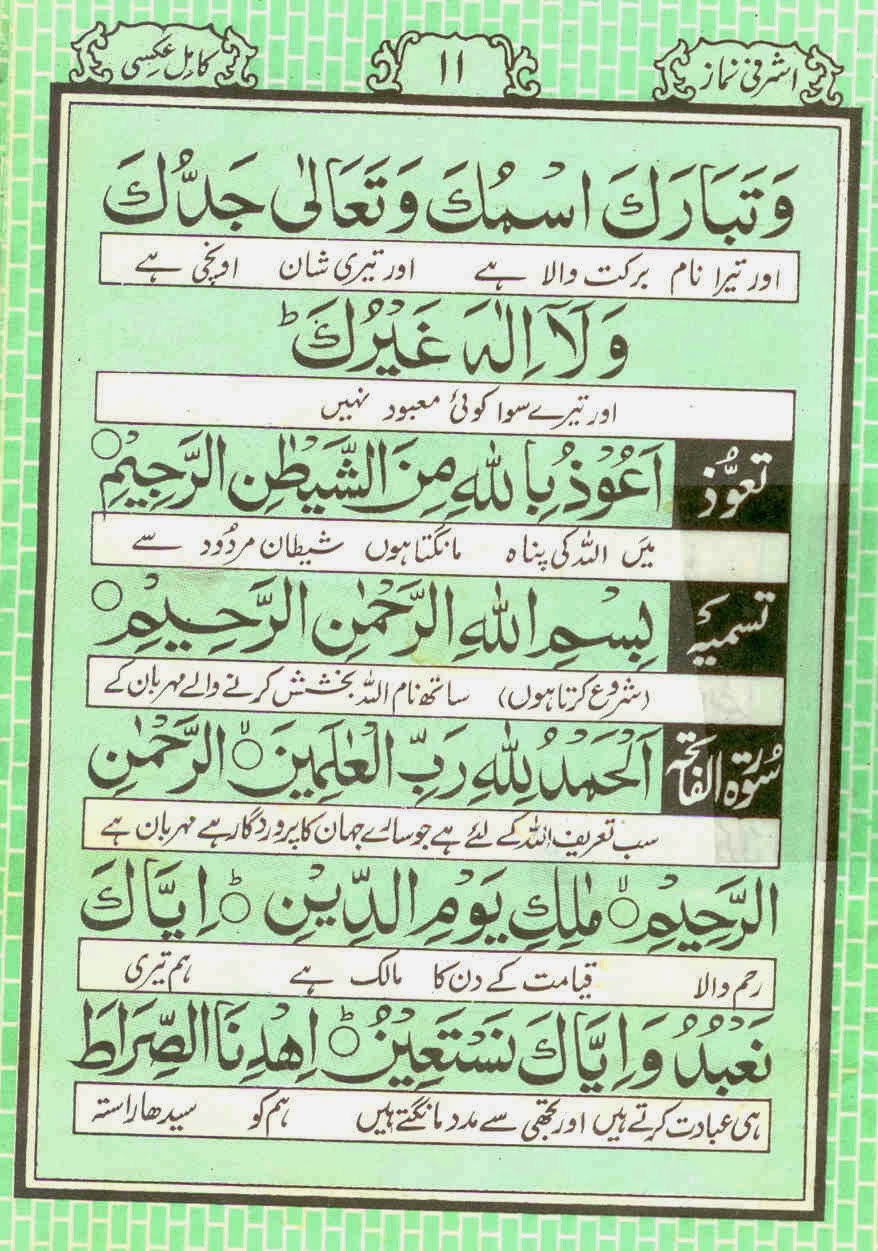 اشرفی نماز ۱۱ کامل عکسی
وَتَبَارَكَ اسْمُكَ وَتَعَالٰى جَدُّكَ
اور تیرا نام برکت والا ہے اور تیری شان اونچی ہے
وَلَآ اِلٰهَ غَيْرُكَ ؕ
اور تیرے سوا کوئی معبود نہیں
تعوُّذ اَعُوْذُ بِاللّٰهِ مِنَ الشَّيْطٰنِ الرَّجِيْمِ ○
میں اللہ کی پناہ مانگتا ہوں شیطان مردُود سے
تسمیہ بِسْمِ اللّٰهِ الرَّحْمٰنِ الرَّحِيْمِ ○
(شروع کرتا ہوں) ساتھ نام اللہ بخشش کرنے والے مہربان کے
سُورۃ الفاتحہ اَلْحَمْدُ لِلّٰهِ رَبِّ الْعٰلَمِيْنَ ○ۙ الرَّحْمٰنِ
سب تعریف اللہ کے لئے ہے جو سارے جہان کا پروردگار ہے مہربان ہے
الرَّحِيْمِ ○ۙ مٰلِكِ يَوْمِ الدِّيْنِ ○ؕ اِيَّاكَ
رحم والا قیامت کے دن کا مالک ہے ہم تیری
نَعْبُدُ وَاِيَّاكَ نَسْتَعِيْنُ ○ؕ اِهْدِنَا الصِّرَاطَ
ہی عبادت کرتے ہیں اور تجھی سے مدد مانگتے ہیں ہم کو سیدھا راستہ